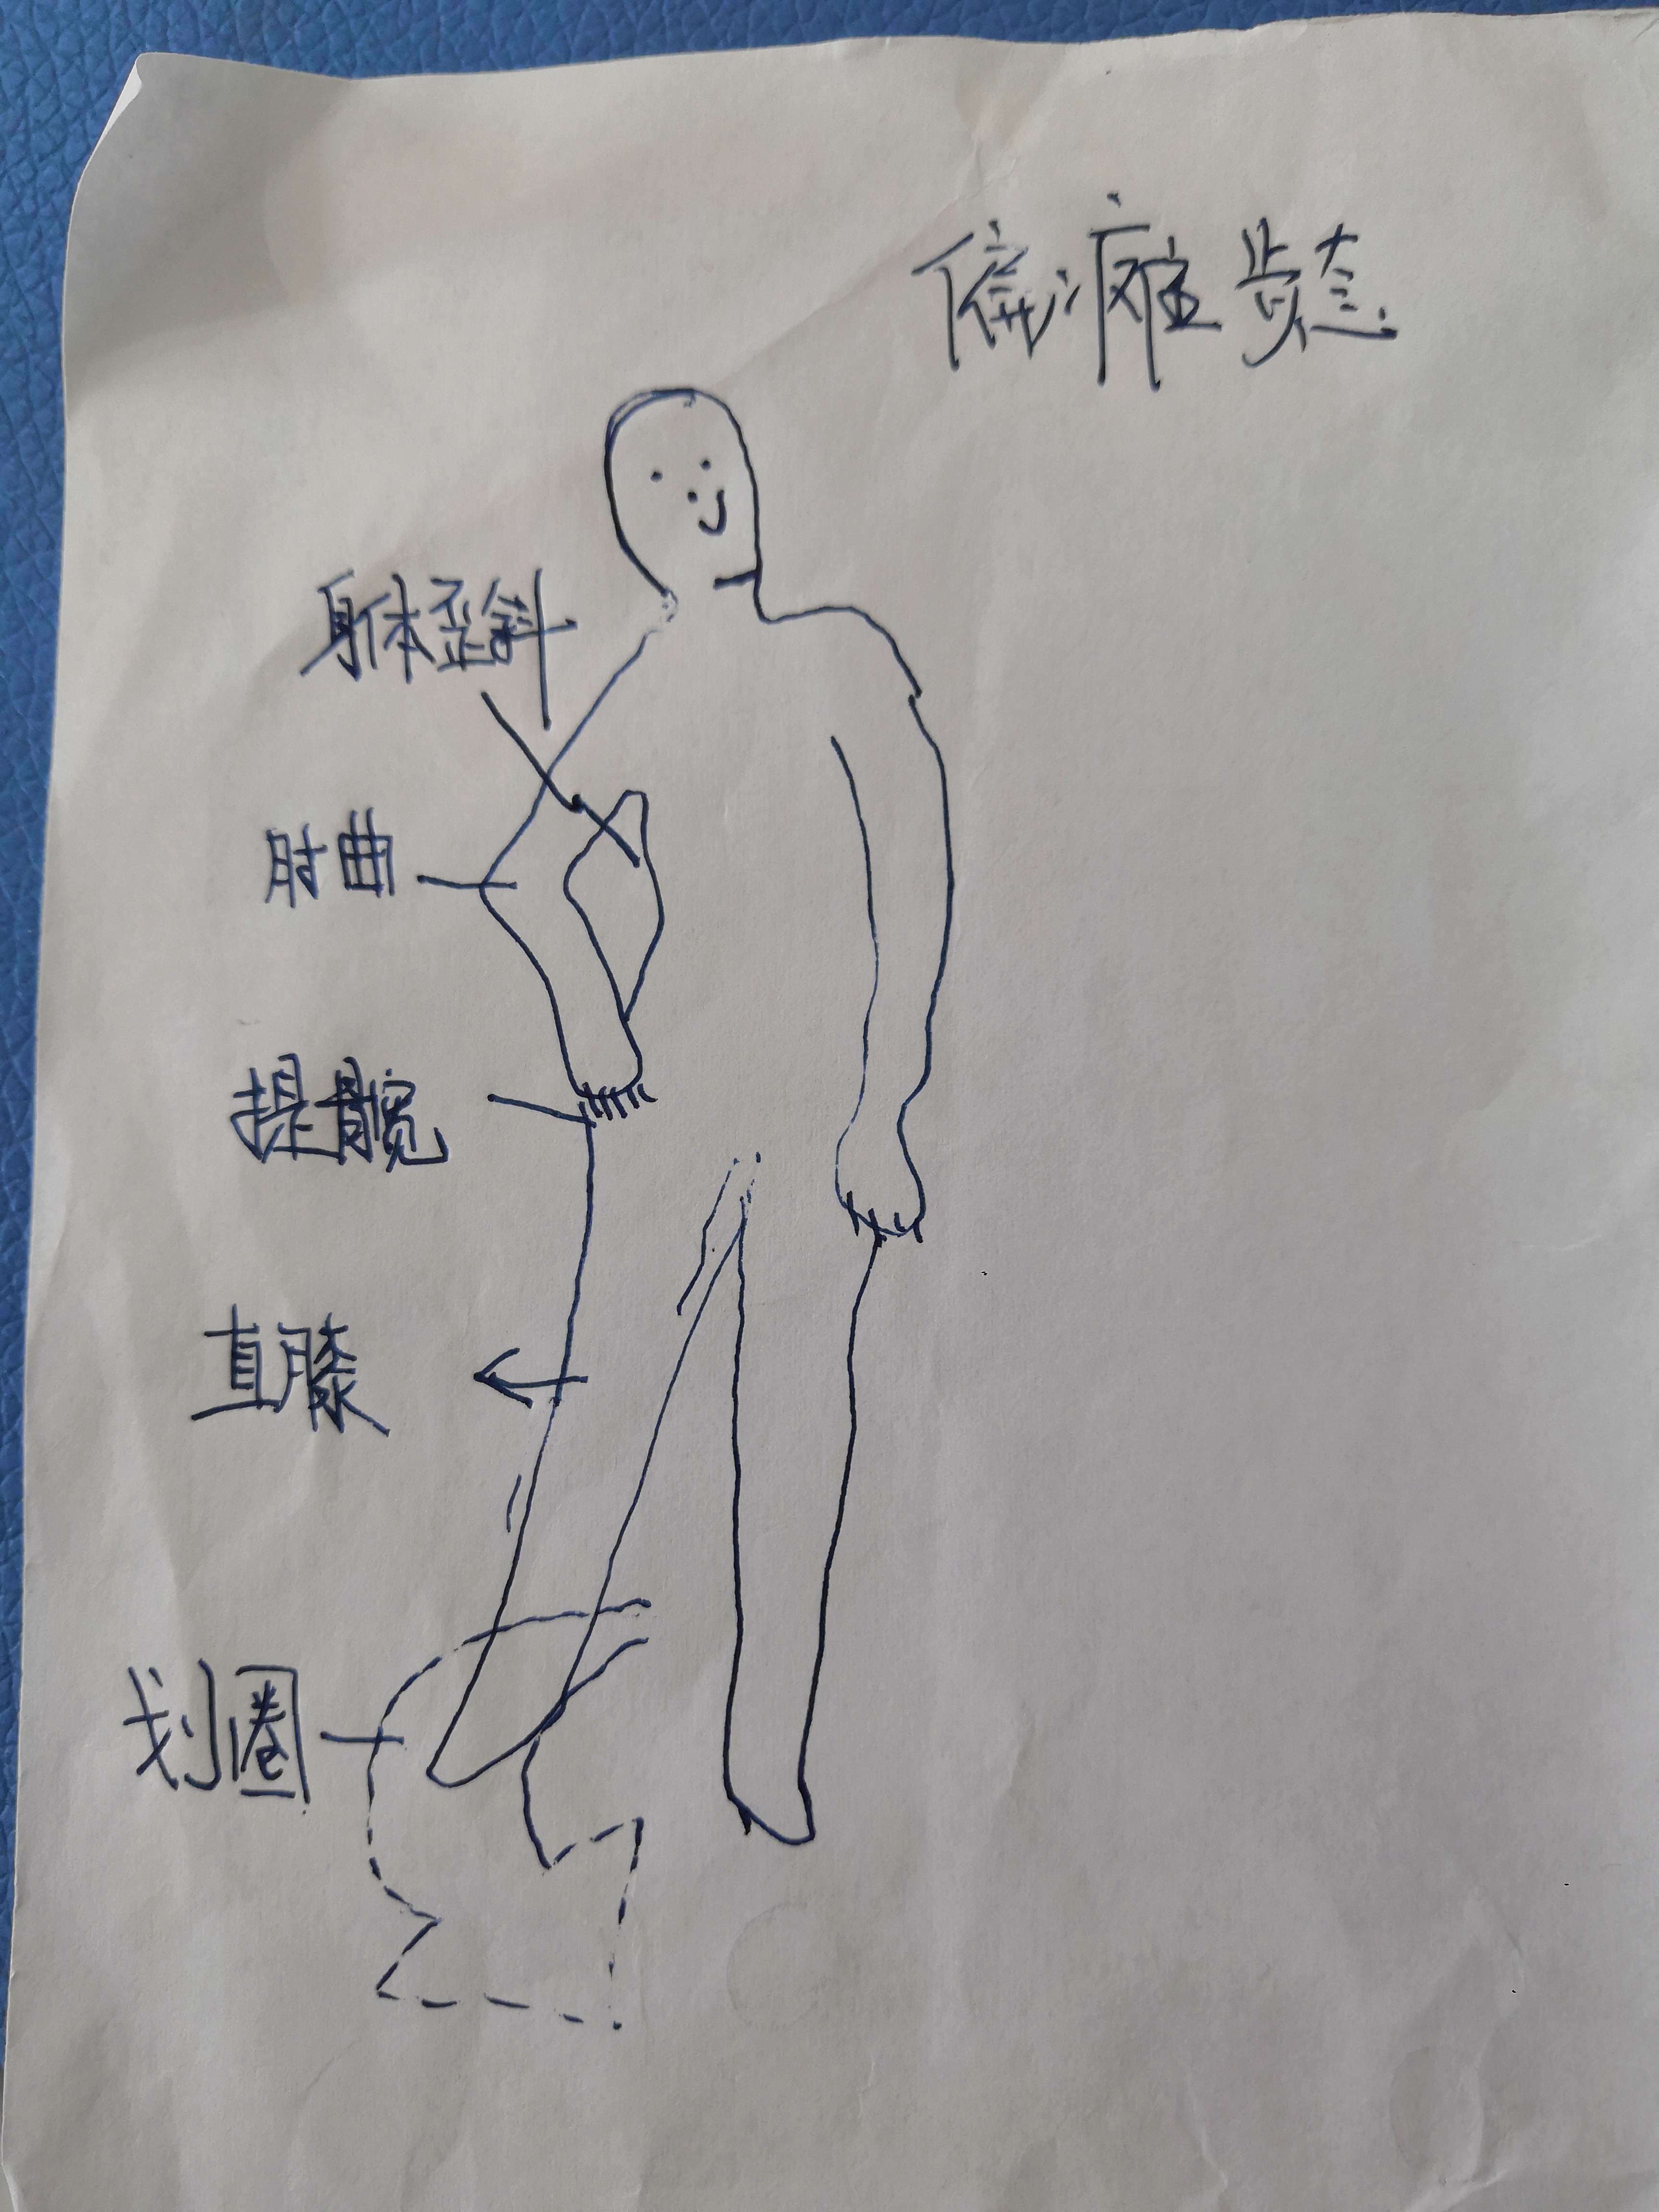 偏瘫步态
身体歪斜
肘曲
提髋
直膝
划圈